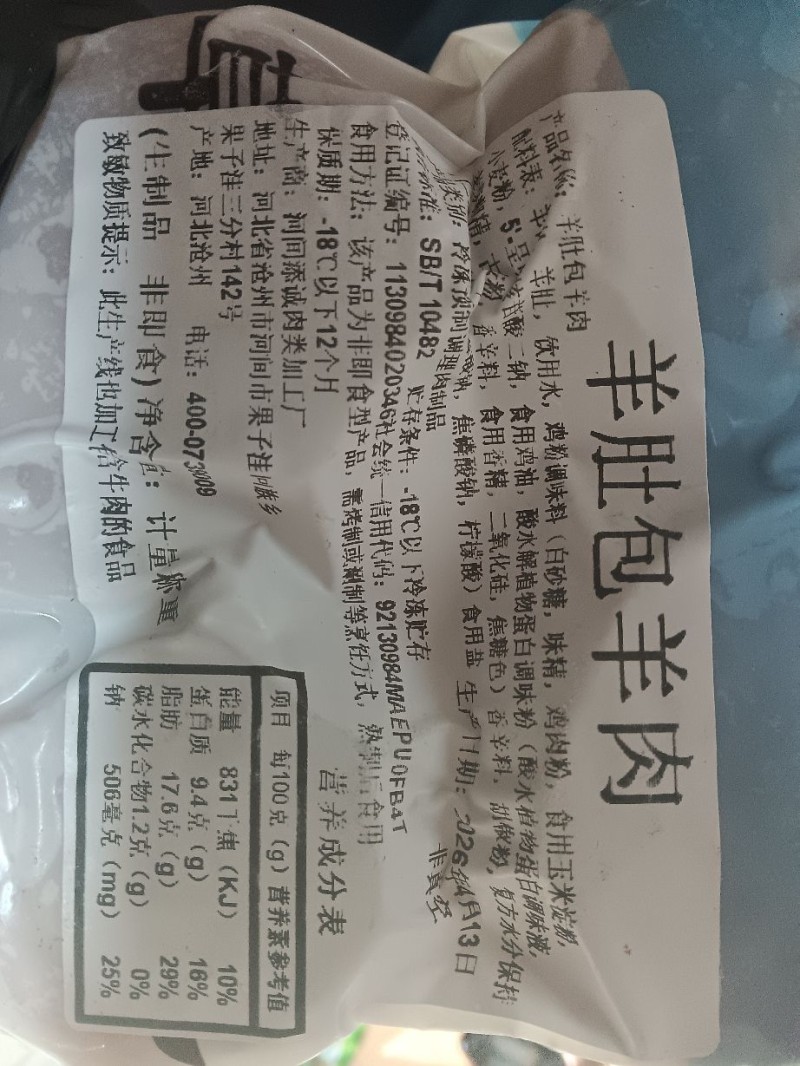 羊肚包羊肉
产品名称：羊肚包羊肉
配料表：羊肚，饮用水，鸡粉调味料（白砂糖，味精，鸡肉粉，食用玉米淀粉，
小麦粉，5'-呈味核苷酸二钠，食用鸡油，酸水解植物蛋白调味粉（酸水植物蛋白调味液，
香辛料，食用香精，二氧化硅，焦糖色）香辛料，胡椒粉，复方水分保持
酸钠，焦磷酸钠，柠檬酸）食用盐 生产日期：2026年4月13日
类别：冷冻预制调理肉制品 非真空
标准：SB/T 10482 贮存条件：-18℃以下冷冻贮存
登记证编号：113098402034​6社会统一信用代码：92130984MAEPU0FB4T
食用方法：该产品为非即食型产品，需烤制或涮制等烹饪方式，熟制后食用
保质期：-18℃以下12个月
生产商：河间添诚肉类加工厂
地址：河北省沧州市河间市果子洼回族乡
果子洼三分村142号
产地：河北沧州 电话：400-073
（生制品 非即食）净含量：计量称重
致敏物质提示：此生产线也加工含牛肉的食品
营养成分表
项目 每100克（g）营养素参考值
能量 831千焦（KJ） 10%
蛋白质 9.4克（g） 16%
脂肪 17.6克（g） 29%
碳水化合物1.2克（g） 0%
钠 506毫克（mg） 25%